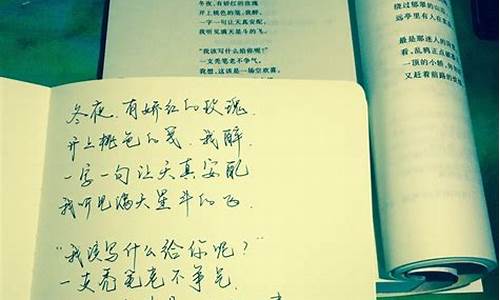 冬夜,有娇红的玫瑰
开上桃色的笺,我醉,
一字一句让天真安配,
我听见满天星斗的飞。
“我该写什么给你呢?”
一支秃笔老不争气,
我想,这该是一场空欢喜,
绕过郁翠的山
远亭里有人在
最是那迷人的
看,乱鸦正点
一顶的小轿,
又赶着前路的
冬夜,有娇红的玫瑰,
开上桃色的笺,我醉,
一字一句让天真安配
我听见满天星斗的飞,
“我该写什么给你呢?”
一支秃笔老不争气,